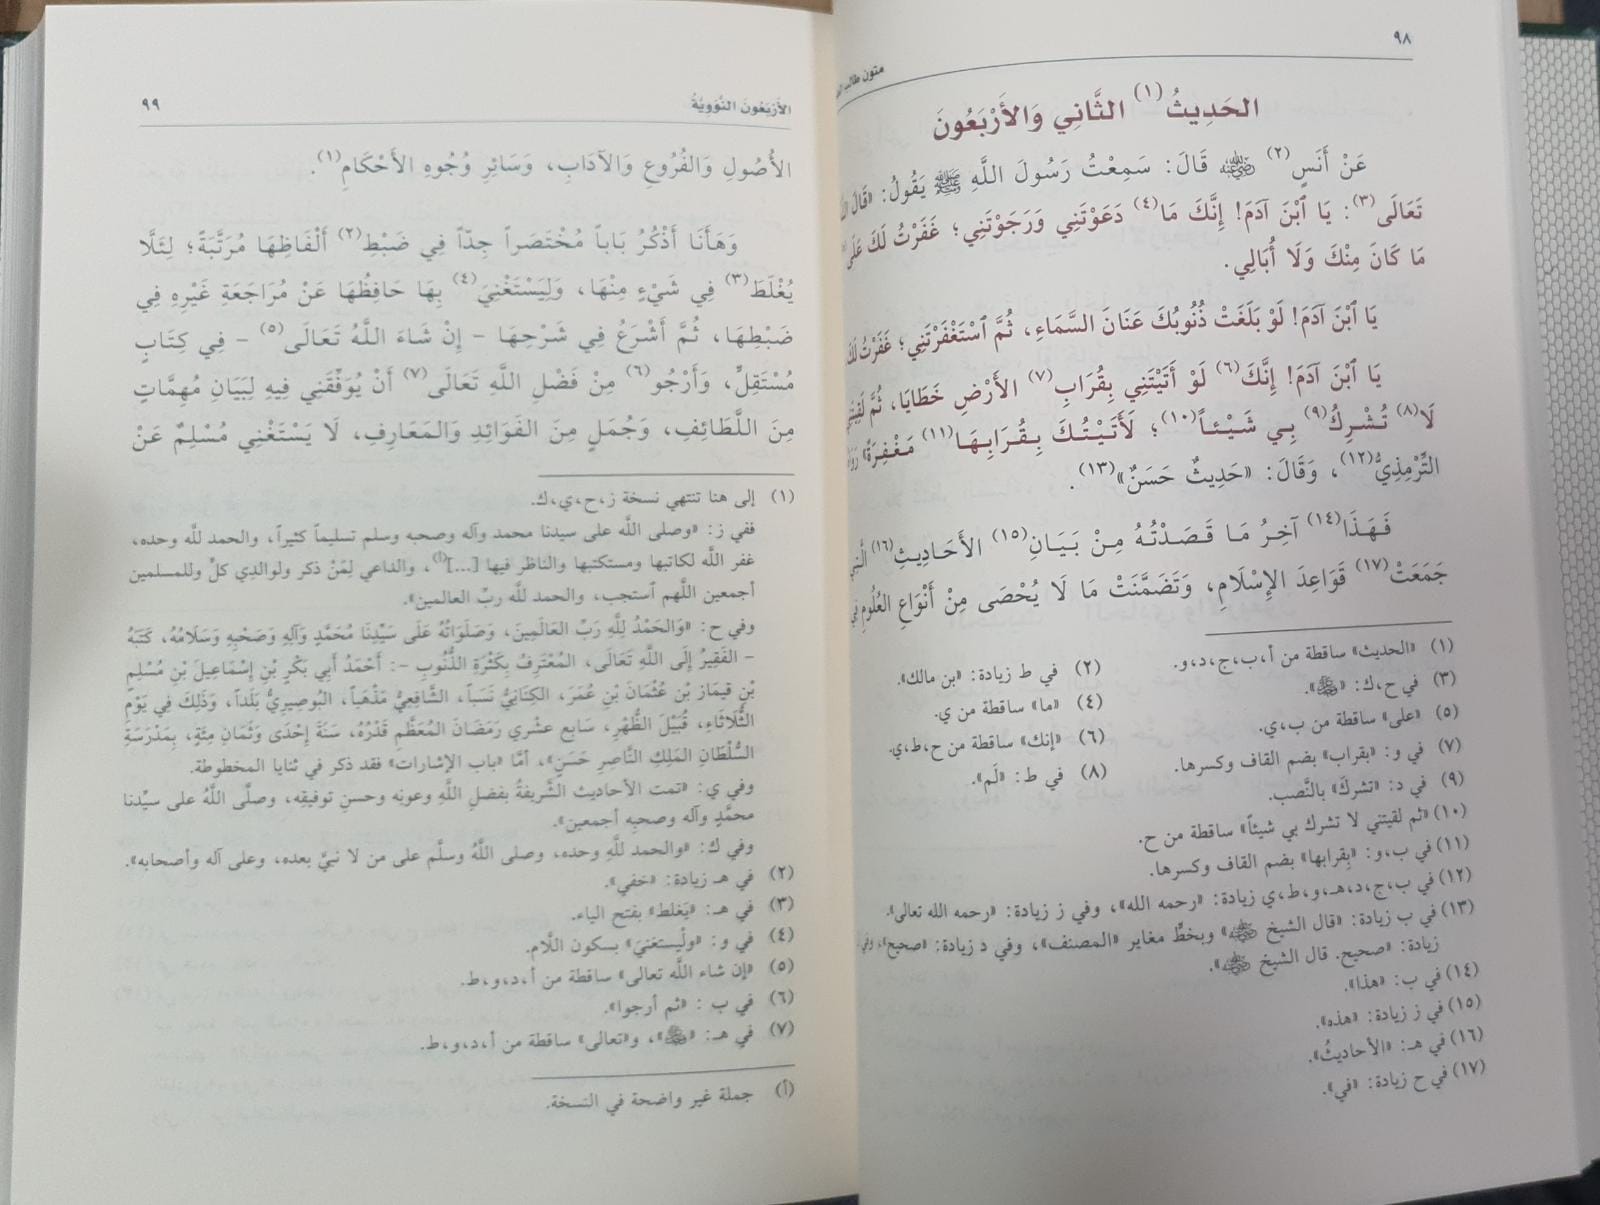 ٩٨
متون طالب
الحَدِيثُ(١) الثَّانِي وَالأَرْبَعُونَ
عَنْ أَنَسٍ(٢) ﷺ قَالَ: سَمِعْتُ رَسُولَ اللَّهِ ﷺ يَقُولُ: «قَالَ
تَعَالَى(٣): يَا ٱبْنَ آدَمَ! إِنَّكَ مَا(٤) دَعَوْتَنِي وَرَجَوْتَنِي؛ غَفَرْتُ لَكَ عَلَى
مَا كَانَ مِنْكَ وَلَا أُبَالِي.
يَا ٱبْنَ آدَمَ! لَوْ بَلَغَتْ ذُنُوبُكَ عَنَانَ السَّمَاءِ، ثُمَّ ٱسْتَغْفَرْتَنِي؛ غَفَرْتُ لَكَ
يَا ٱبْنَ آدَمَ! إِنَّكَ(٦) لَوْ أَتَيْتَنِي بِقُرَابِ(٧) الأَرْضِ خَطَايَا، ثُمَّ لَقِيتَنِي
لَا(٨) تُشْرِكُ(٩) بِي شَيْئاً(١٠)؛ لَأَتَيْتُكَ بِقُرَابِهَا(١١) مَغْفِرَةً»
التِّرْمِذِيُّ(١٢)، وَقَالَ: «حَدِيثٌ حَسَنٌ»(١٣).
فَهَذَا(١٤) آخِرُ مَا قَصَدْتُهُ مِنْ بَيَانِ(١٥) الأَحَادِيثِ(١٦) الَّتِي
جَمَعَتْ(١٧) قَوَاعِدَ الإِسْلَامِ، وَتَضَمَّنَتْ مَا لَا يُحْصَى مِنْ أَنْوَاعِ العُلُومِ فِي
(١) «الحديث» ساقطة من أ،ب،ج،د،و. (٢) في ط زيادة: «بن مالك».
(٣) في ح،ك: «ﷻ». (٤) «ما» ساقطة من ي.
(٥) «على» ساقطة من ب،ي. (٦) «إنك» ساقطة من ح،ط،ي.
(٧) في و: «بقراب» بضم القاف وكسرها. (٨) في ط: «لَم».
(٩) في د: «تشركَ» بالنَّصب.
(١٠) «ثم لقيتني لا تشرك بي شيئاً» ساقطة من ح.
(١١) في ب،و: «بِقرابها» بضم القاف وكسرها.
(١٢) في ب،ج،د،هـ،و،ط،ي زيادة: «رحمه الله»، وفي ز زيادة: «رحمه الله تعالى».
(١٣) في ب زيادة: «قال الشيخ ﵁» وبخطٍّ مغاير «المصنف»، وفي د زيادة: «صحيح»، وفي
زيادة: «صحيح. قال الشيخ ﵁».
(١٤) في ب: «هذا».
(١٥) في ز زيادة: «هذه».
(١٦) في هـ: «الأحاديثُ».
(١٧) في ح زيادة: «في».
الأَرْبَعُونَ النَّوَوِيَّةُ
٩٩
الأُصُولِ وَالفُرُوعِ وَالآدَابِ، وَسَائِرِ وُجُوهِ الأَحْكَامِ(١).
وَهَأَنَا أَذْكُرُ بَاباً مُخْتَصَراً جِدّاً فِي ضَبْطِ(٢) أَلْفَاظِهَا مُرَتَّبَةً؛ لِئَلَّا
يُغْلَطَ(٣) فِي شَيْءٍ مِنْهَا، وَلِيَسْتَغْنِيَ(٤) بِهَا حَافِظُهَا عَنْ مُرَاجَعَةِ غَيْرِهِ فِي
ضَبْطِهَا، ثُمَّ أَشْرَعُ فِي شَرْحِهَا - إِنْ شَاءَ اللَّهُ تَعَالَى(٥) - فِي كِتَابٍ
مُسْتَقِلٍّ، وَأَرْجُو(٦) مِنْ فَضْلِ اللَّهِ تَعَالَى(٧) أَنْ يُوَفِّقَنِي فِيهِ لِبَيَانِ مُهِمَّاتٍ
مِنَ اللَّطَائِفِ، وَجُمَلٍ مِنَ الفَوَائِدِ وَالمَعَارِفِ، لَا يَسْتَغْنِي مُسْلِمٌ عَنْ
(١) إلى هنا تنتهي نسخة ز،ح،ي،ك.
ففي ز: «وصلى اللَّه على سيدنا محمد وآله وصحبه وسلم تسليماً كثيراً، والحمد للَّه وحده،
غفر اللَّه لكاتبها ومستكتبها والناظر فيها [...](أ)، والداعي لِمَنْ ذكر ولوالدِي كلٍّ وللمسلمين
أجمعين اللَّهم ٱستجب، والحمد للَّه ربِّ العالمين».
وفي ح: «وَالحَمْدُ لِلَّهِ رَبِّ العَالَمِينَ، وَصَلَوَاتُهُ عَلَى سَيِّدِنَا مُحَمَّدٍ وَآلِهِ وَصَحْبِهِ وَسَلَامُهُ، كَتَبَهُ
- الفَقِيرُ إِلَى اللَّهِ تَعَالَى، المُعْتَرِفُ بِكَثْرَةِ الذُّنُوبِ -: أَحْمَدُ أَبِي بَكْرِ بْنِ إِسْمَاعِيلَ بْنِ مُسْلِمٍ
بْنِ قيمَاز بْنِ عُثْمَانَ بْنِ عُمَرَ، الكِنَانِيُّ نَسَباً، الشَّافِعِيُّ مَذْهَباً، البُوصِيرِيُّ بَلَداً، وَذَلِكَ فِي يَوْمِ
الثُّلَاثَاءِ، قُبَيْلَ الظُّهْرِ، سَابِع عشْرِي رَمَضَانَ المُعَظَّمِ قَدْرُهُ، سَنَةَ إِحْدَى وَثَمَانِ مِئَةٍ، بِمَدْرَسَةِ
السُّلْطَانِ المَلِكِ النَّاصِرِ حَسَنٍ»، أمَّا «باب الإشارات» فقد ذكر في ثنايا المخطوطة.
وفي ي: «تمت الأحاديث الشَّريفةُ بفضلِ اللَّهِ وعونِه وحسنِ توفيقِه، وصلَّى اللَّهُ على سيِّدنا
محمَّدٍ وآله وصحبِه أجمعين».
وفي ك: «والحمد للَّهِ وحده، وصلى اللَّهُ وسلَّم على من لا نبيَّ بعده، وعلى آله وأصحابه».
(٢) في هـ زيادة: «خفي».
(٣) في هـ: «يَغلط» بفتح الياء.
(٤) في و: «ولْيستغنيَ» بسكون اللَّام.
(٥) «إن شاء اللَّه تعالى» ساقطة من أ،د،و،ط.
(٦) في ب : «ثم أرجوا».
(٧) في هـ: «ﷻ»، و«تعالى» ساقطة من أ،د،و،ط.
(أ) جملة غير واضحة في النسخة.